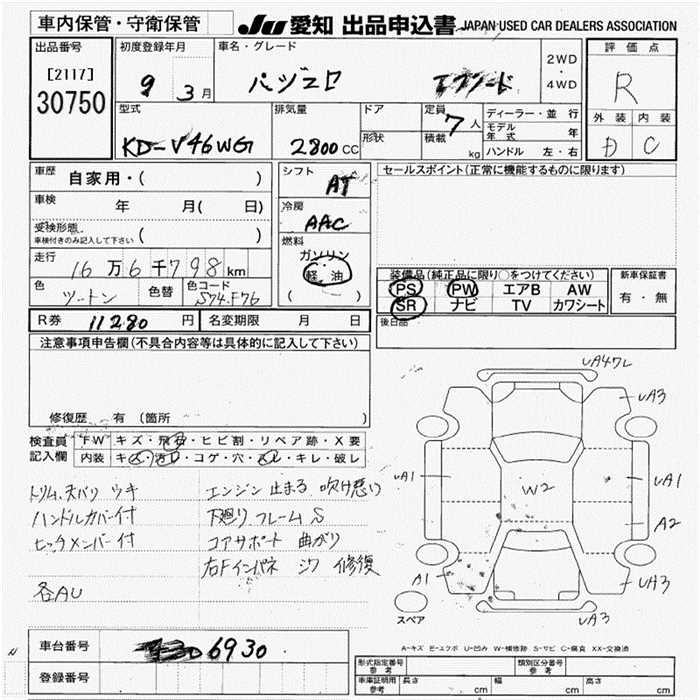 車内保管・守衛保管
JU 愛知 出品申込書 JAPAN USED CAR DEALERS ASSOCIATION
出品番号
[2117]
30750
初度登録年月
9 3月
車名・グレード
パジェロ
エクシード
2WD
・
4WD
評価点
R
外装 内装
D C
型式
KD-V46WG
排気量
2800CC
ドア
形状
定員
7人
積載
kg
ディーラー・並行
モデル年式 年
ハンドル 左・右
車歴
自家用・( )
車検
年 月( 日)
受検形態
車検付きのみ記入して下さい ( )
走行
16万6千798km
色
ツートン
色替
色コード
S74.F76
シフト
AT
冷房
AAC
燃料
ガソリン
軽油
( )
セールスポイント(正常に機能するものに限ります)
装備品(純正品に限り○をつけてください)
PS PW エアB AW
SR ナビ TV カワシート
新車保証書
有・無
後日品
R券 11280円 名変期限 月 日
注意事項申告欄(不具合内容等は具体的に記入して下さい)
修復歴 有 (箇所 )
検査員記入欄
FW キズ・飛石・ヒビ割・リペア跡・X要
内装 キズ・汚れ・コゲ・穴・スレ・キレ・破レ
トリム、天バリ ウキ
ハンドルカバー付
ヒッチメンバー付
各AU
エンジン 止まる 吹け悪い
下廻り フレーム S
コアサポート 曲がり
右Fインパネ シワ 修復
UA47L
UA3
UA1
W2
UA1
A2
A1
UA3
UA3
スペア
A-キズ E-エクボ U-凹み W-補修跡 S-サビ C-腐食 XX-交換済
車台番号
6930
登録番号
形式指定番号
参考
類別区分番号
参考
車庫証明用
参考
長さ cm
幅 cm
高さ cm